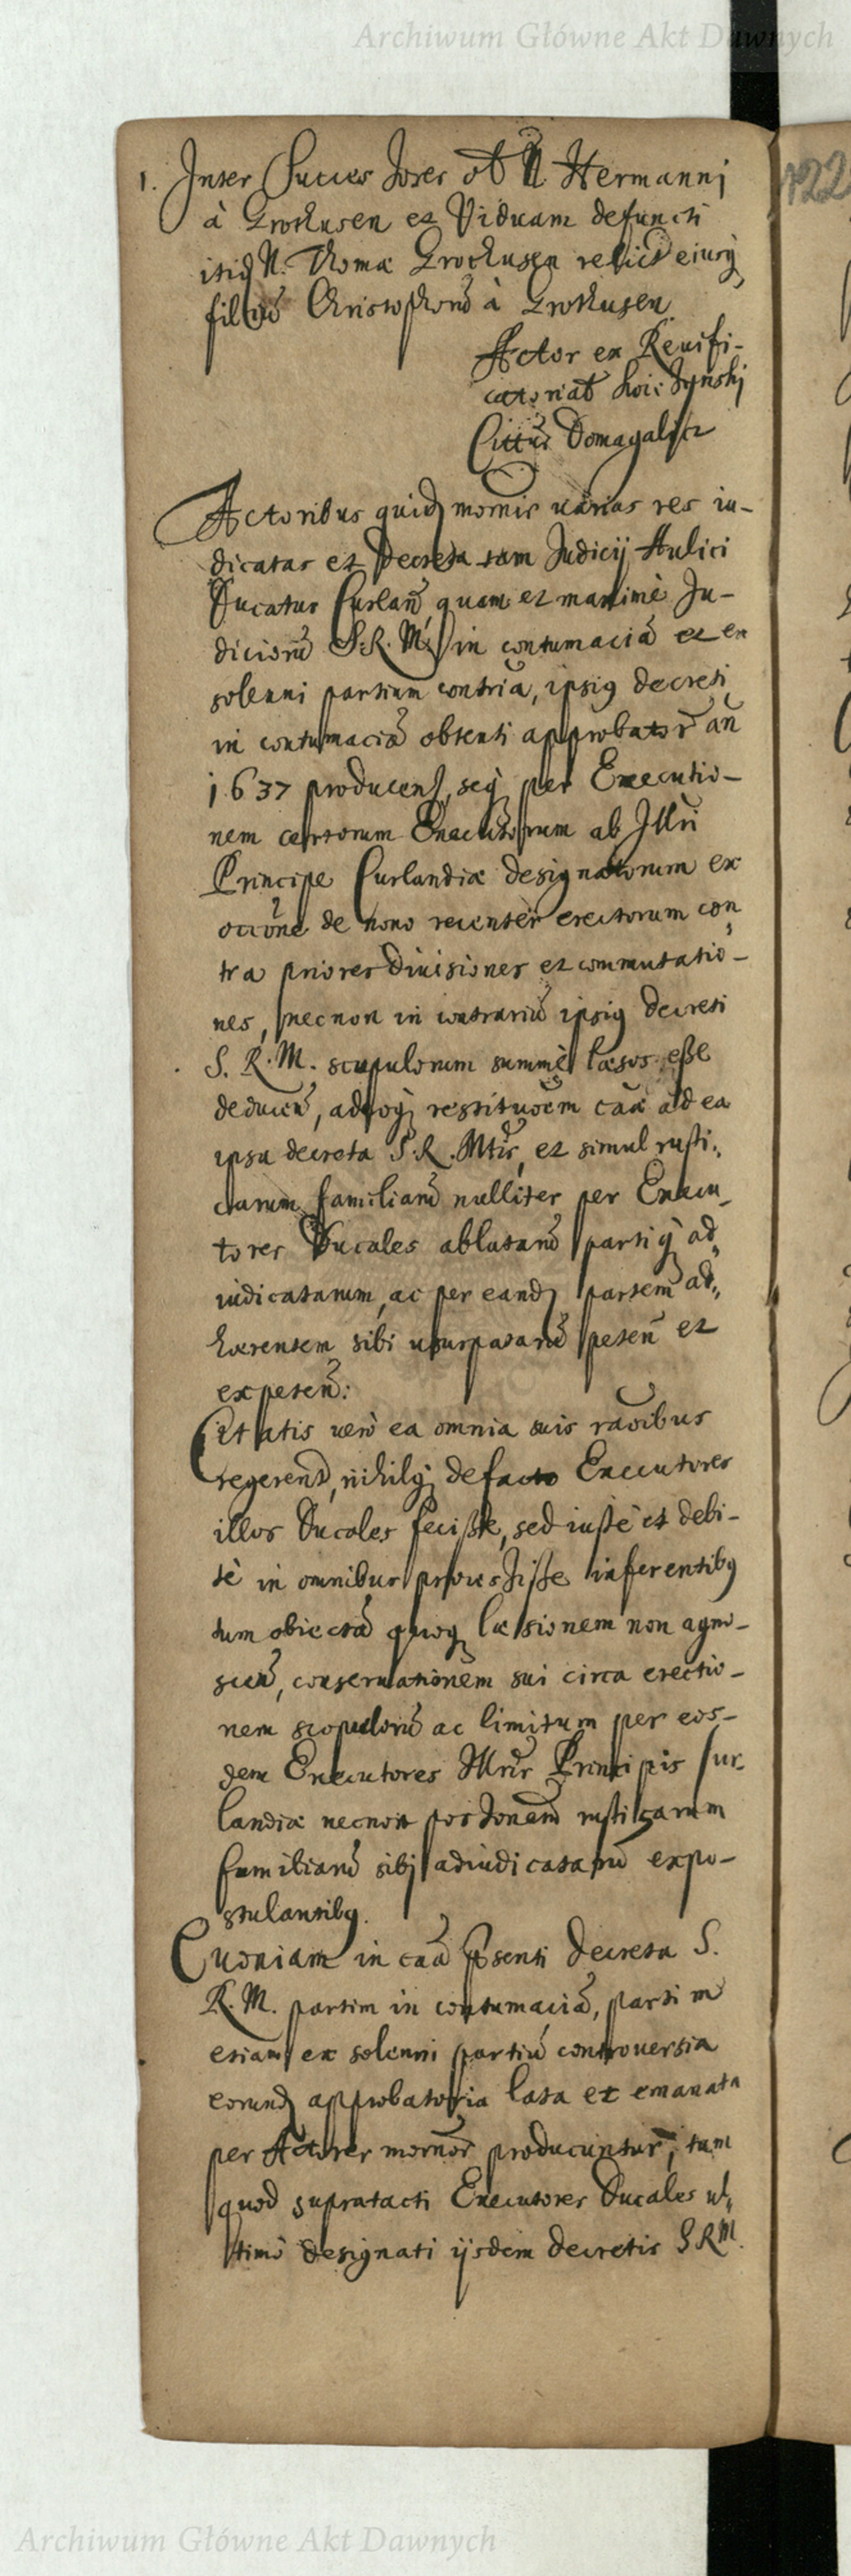 Archiwum Główne Akt Dawnych
122
1. Inter Succes sores ol̃ N Hermanni
à Grothusen et Viduam defuncti
itid N. Thomæ Grothusen relict̃ eiusq
filiũ Christophorũ à Grothusen
Actor ex Reuifi-
catoriat̃
Citt̃us Domagalicz
Actoribus quid mornis uarias res iu-
dicatas et Decreta tam Judicij Aulici
Ducatus Curlan̄, quam et maximè Ju-
diciorũ S. R. M. in contumaciã et ex
solenni partium contr̃ia, ipsiq decreti
in contumaciã obtenti approbator̃ an̄
1637 producen̄, seq per Executio-
nem certorum Executorum ab Jll̃ri
Principe Curlandiæ designatorum ex
occõne de nouo recenter erectorum con
tra priores diuisiones et commutatio-
nes, necnon in contrariũ ipsiq decreti
S. R. M. scopulorum summè læsos esse
deducen̄, adeoq restituõem cau̇æ ad ea
ipsa decreta S. R. Mt̃is, et simul rusti-
carum familiarũ nulliter per Execu-
tores Ducales ablatarũ partiq ad
iudicatarum, ac per eand partem ad,
hærentem sibi usurpatarũ peten̄ et
expeten̄:
Citatis uerò ea omnia suis raõibus
regerent̃, nihilq de facto Executores
illos Ducales fecisse, sed iustè et debi-
tè in omnibus processisse inferentibq
tum obiectã quoq læsionem non agno-
scen̄, conseruationem sui circa erectio-
nem scopulorũ ac limitum per eos-
dem Executores Jllr̃is Principis Cur-
landiæ necnon portionem rusticarum
familiarũ sibi adiudicatarũ expo-
stulantibq.
Quoniam in cau̇ã p̃senti decreta S.
R. M. partim in contumaciã, partim
etiam ex solenni partiũ controuersia
eorund approbatoria lata et emanata
per Actores mornõr producuntur, tum
quod supratacti Executores Ducales ul,
timo designati ijsdem decretis S R M.
Archiwum Główne Akt Dawnych